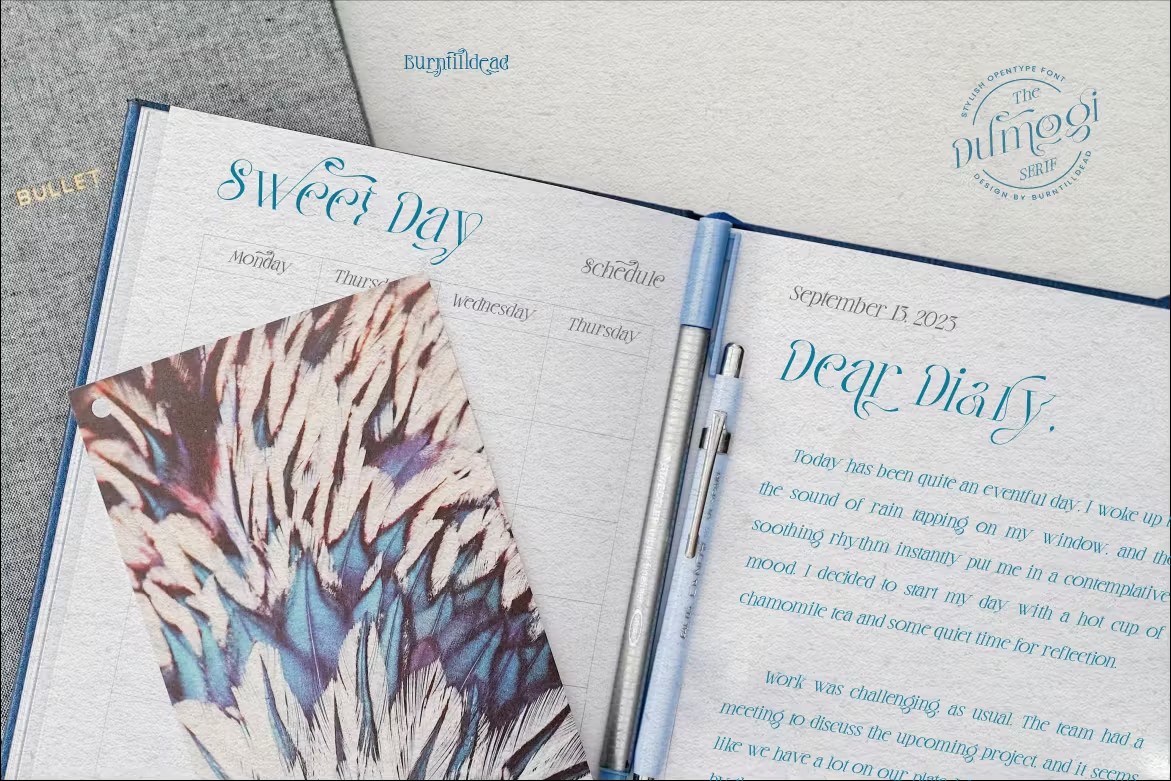 Burntilldead
STYLISH OPENTYPE FONT
The
Dumogi
SERIF
DESIGN BY BURNTILLDEAD
BULLET
Sweet Day
Schedule
Monday
Wednesday
Thursday
September 13, 2023
Dear Diary,
Today has been quite an eventful day. I woke up
the sound of rain tapping on my window, and the
soothing rhythm instantly put me in a contemplative
mood. I decided to start my day with a hot cup of
chamomile tea and some quiet time for reflection.
Work was challenging, as usual. The team had a
meeting to discuss the upcoming project, and it seems
like we have a lot on our